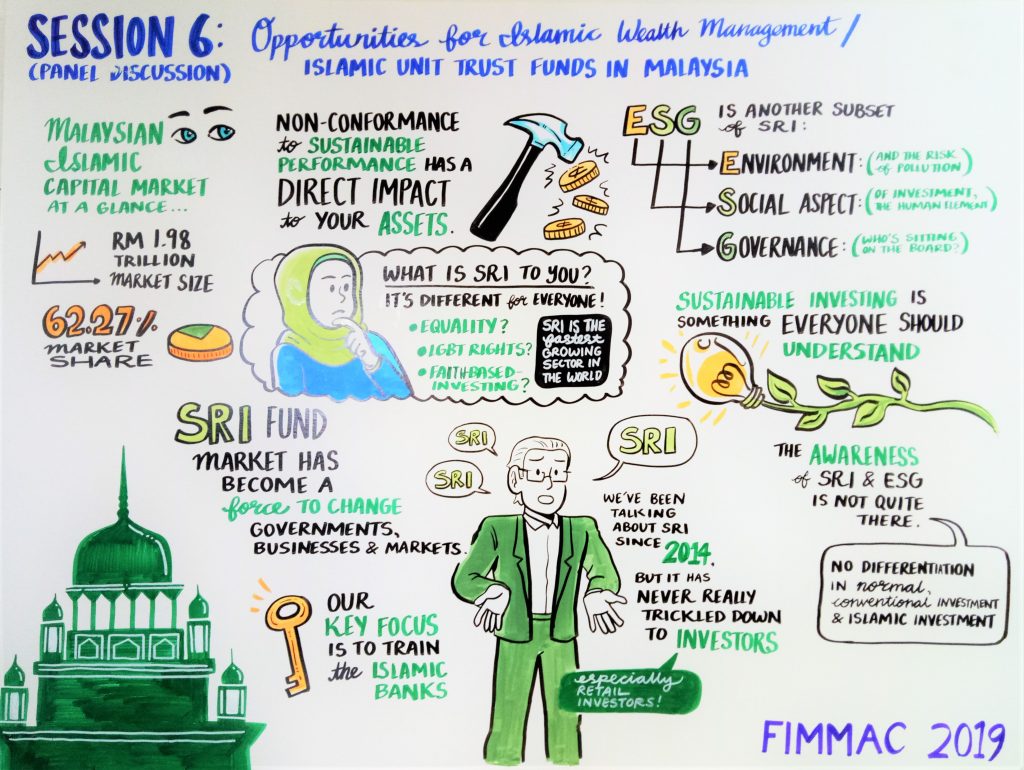 SESSION 6: Opportunities for Islamic Wealth Management /
(PANEL DISCUSSION) ISLAMIC UNIT TRUST FUNDS IN MALAYSIA
MALAYSIAN
ISLAMIC
CAPITAL MARKET
AT A GLANCE...
RM 1.98
TRILLION
MARKET SIZE
62.27%
MARKET
SHARE
NON-CONFORMANCE
to SUSTAINABLE
PERFORMANCE HAS A
DIRECT IMPACT
to YOUR ASSETS.
ESG IS ANOTHER SUBSET
of SRI:
ENVIRONMENT: (AND THE RISK
of POLLUTION)
SOCIAL ASPECT: (OF INVESTMENT,
THE HUMAN ELEMENT)
GOVERNANCE: (WHO'S SITTING
ON THE BOARD?)
WHAT IS SRI TO YOU?
IT'S DIFFERENT for EVERYONE!
• EQUALITY?
• LGBT RIGHTS?
• FAITH-BASED-
INVESTING?
SRI IS THE
fastest
GROWING
SECTOR IN
THE WORLD
SUSTAINABLE INVESTING IS
SOMETHING EVERYONE SHOULD
UNDERSTAND
SRI FUND
MARKET HAS
BECOME A
force TO CHANGE
GOVERNMENTS,
BUSINESSES & MARKETS.
OUR
KEY FOCUS
IS TO TRAIN
the ISLAMIC
BANKS
SRI
SRI
SRI
WE'VE BEEN
TALKING
ABOUT SRI
SINCE 2014.
BUT IT HAS
NEVER REALLY
TRICKLED DOWN
TO INVESTORS
especially
RETAIL
INVESTORS!
THE AWARENESS
of SRI & ESG
IS NOT QUITE
THERE.
NO DIFFERENTIATION
IN normal,
conventional INVESTMENT
& ISLAMIC INVESTMENT
FIMMAC 2019